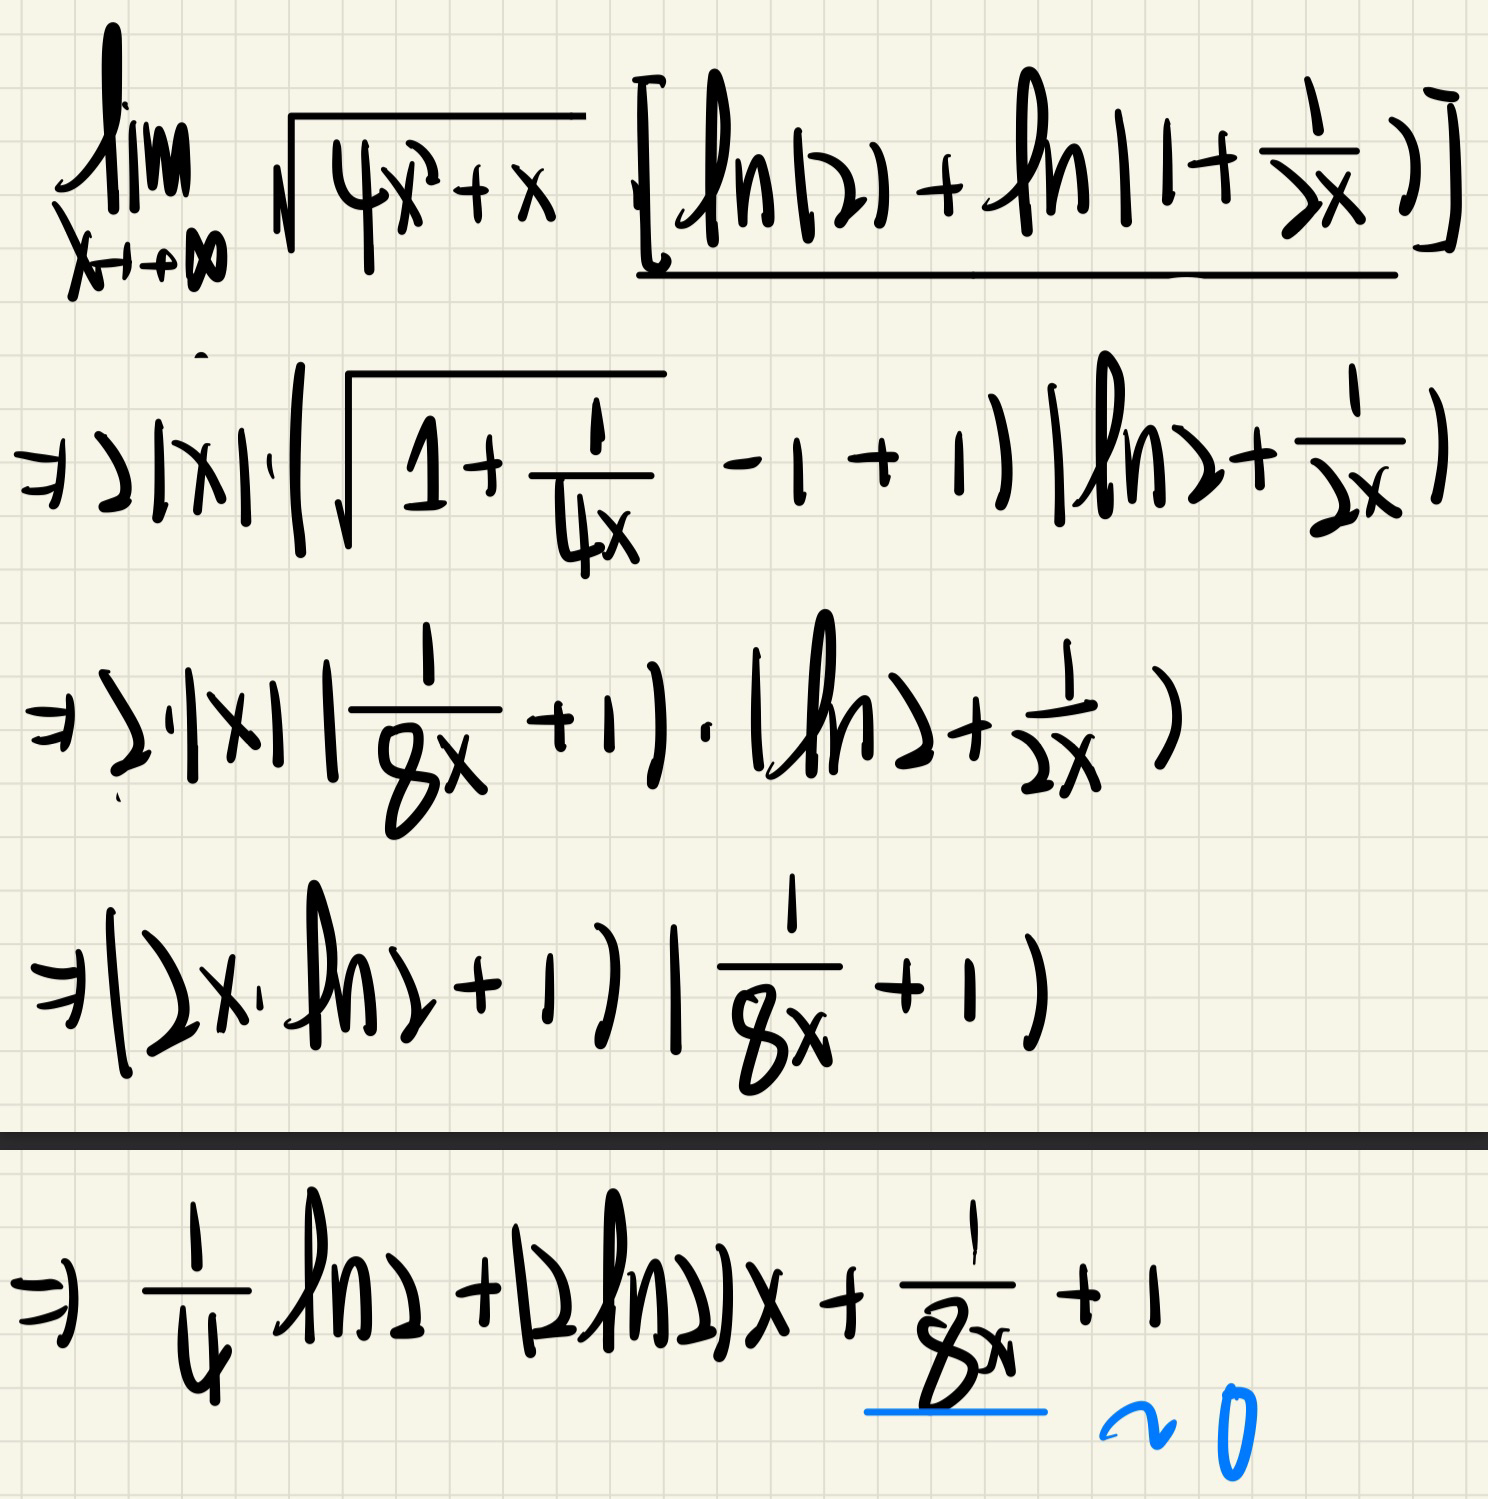 lim x→+∞ √(4x²+x) [ln(2)+ln(1+1/2x)]
⇒ 2|x|·(√(1+1/4x) -1+1)(ln2+1/2x)
⇒ 2·|x|(1/8x+1)·(ln2+1/2x)
⇒ (2x·ln2+1)(1/8x+1)
⇒ 1/4 ln2+(2ln2)x+1/8x+1
~0